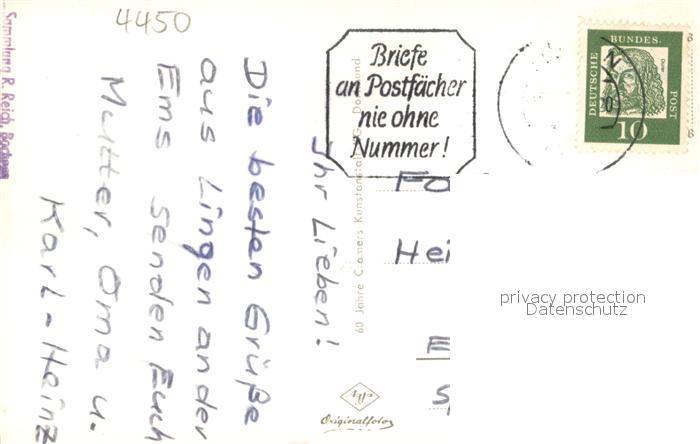 4450
Sammlung R. Reich, Bochum
Ihr Lieben!
Die besten Grüße
aus Lingen an der
Ems senden Euch
Mutter, Oma u.
Karl-Heinz
60 Jahre Cramers Kunstanstalt Dortmund
Agfa
Originalfoto
Briefe
an Postfächer
nie ohne
Nummer!
DEUTSCHE
BUNDES-
POST
10
Hei
privacy protection
Datenschutz